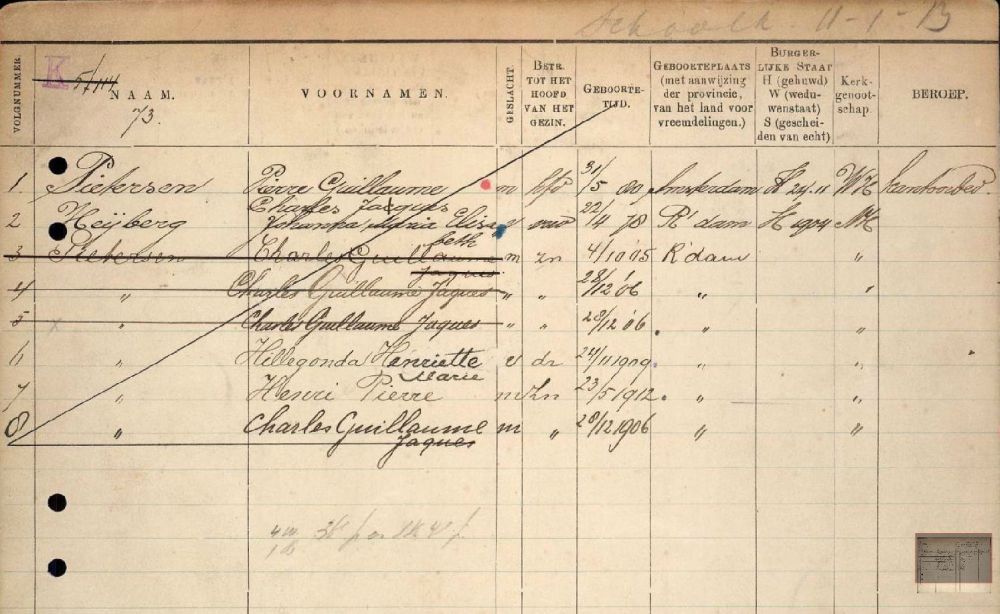 11-1-13
K 5/44
VOLGNUMMER.
NAAM.
73.
VOORNAMEN.
GESLACHT.
BETR. TOT HET HOOFD VAN HET GEZIN.
GEBOORTE-TIJD.
GEBOORTEPLAATS (met aanwijzing der provincie, van het land voor vreemdelingen.)
BURGER-LIJKE STAAT H (gehuwd) W (wedu-wenstaat) S (geschei-den van echt)
Kerk-genoot-schap.
BEROEP.
1. Pietersen Pierre Guillaume m hfd 31/5 80 Amsterdam H 24.11 WH Kantoorbed
Charles Jacques
2 Heÿberg Johanna Maria Elisa v vrw 22/4 78 R'dam H 1904 NH
beth
3 Pietersen Charles Guillaume m zn 4/10 05 R'dam "
Jaques
4 " Charles Guillaume Jaques " " 28/12 '06 " "
5 " Charles Guillaume Jaques " " 28/12 '06. " "
6 " Hillegonda Henriette v dr 24/11 1909. " "
Marie
7 " Henri Pierre m Zn 23/5 1912. " "
8 " Charles Guillaume m " 28/12 1906 " "
Jaques